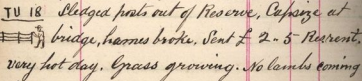 TU 18 Sledged posts out of Reserve, Capsize at
bridge, hames broke. Sent £ 2-5 Res rent.
very hot day. Grass growing. No lambs coming